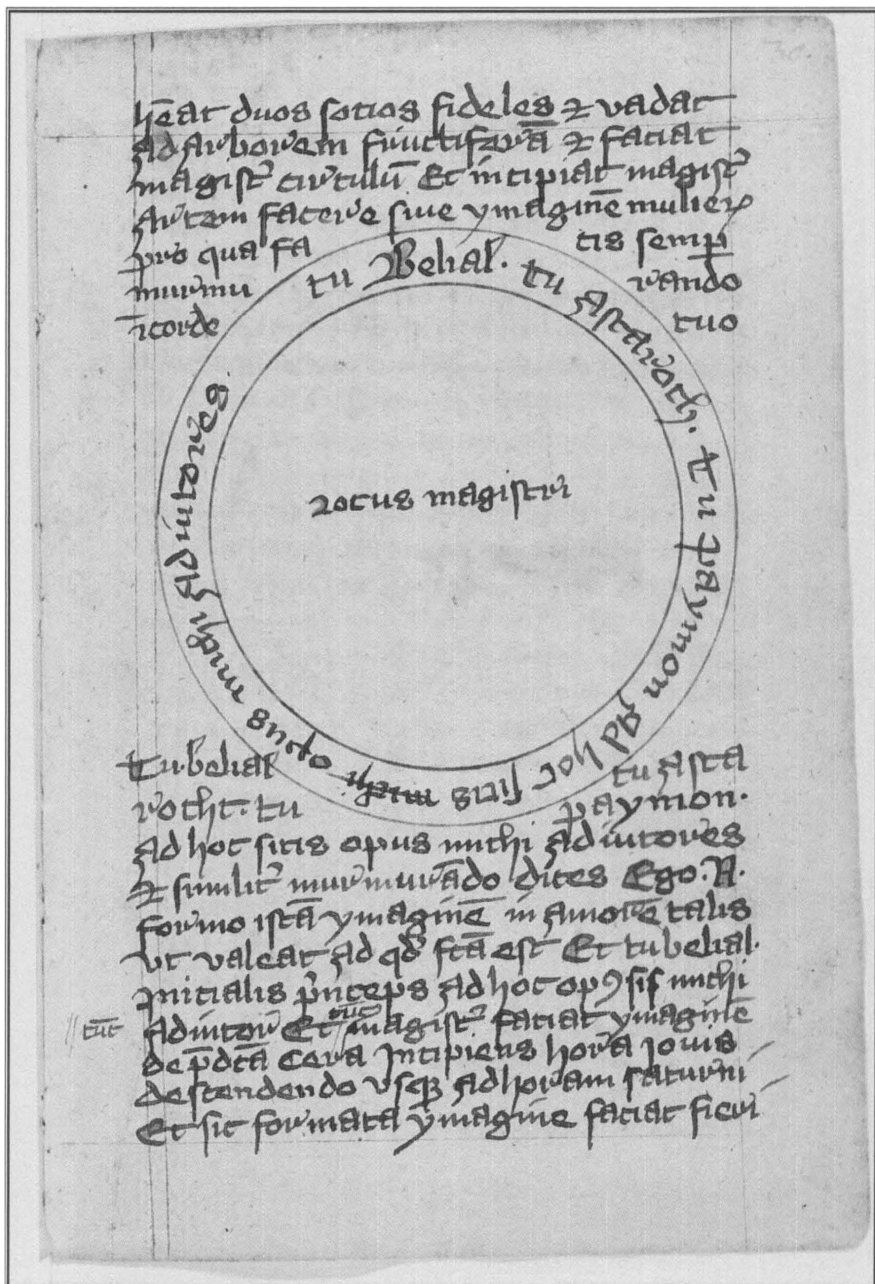 hēat duos sotios fideles et vadat
ad arborem fructiferā et faciat
magistr̄ circulū Et incipiat magistr̄
artem facere sive ymaginē mulier
pro qua fa tis semp̄
murmu rando
ī corde tuo
tu Belial. tu Astaroth. Tu Paymon ad hoc sitis michi opus michi adiutores
Locus magistri
Tu belial tu asta
rocht. tu paymon.
ad hoc sitis opus michi adiutores
et similit̄ murmurādo dices Ego. N.
formo istā ymaginē in amorē talis
ut valeat ad qd̄ fc̄ā est Et tu belial.
Inicialis p̄nceps ad hoc opꝰ sis michi
tūc adiutor Et tūc magistr̄ faciat ymaginē
de p̄dc̄ā cera Incipiens hora Jovis
descendendo usqꝫ ad horam saturni
Et sic formata ymagine faciat fieri